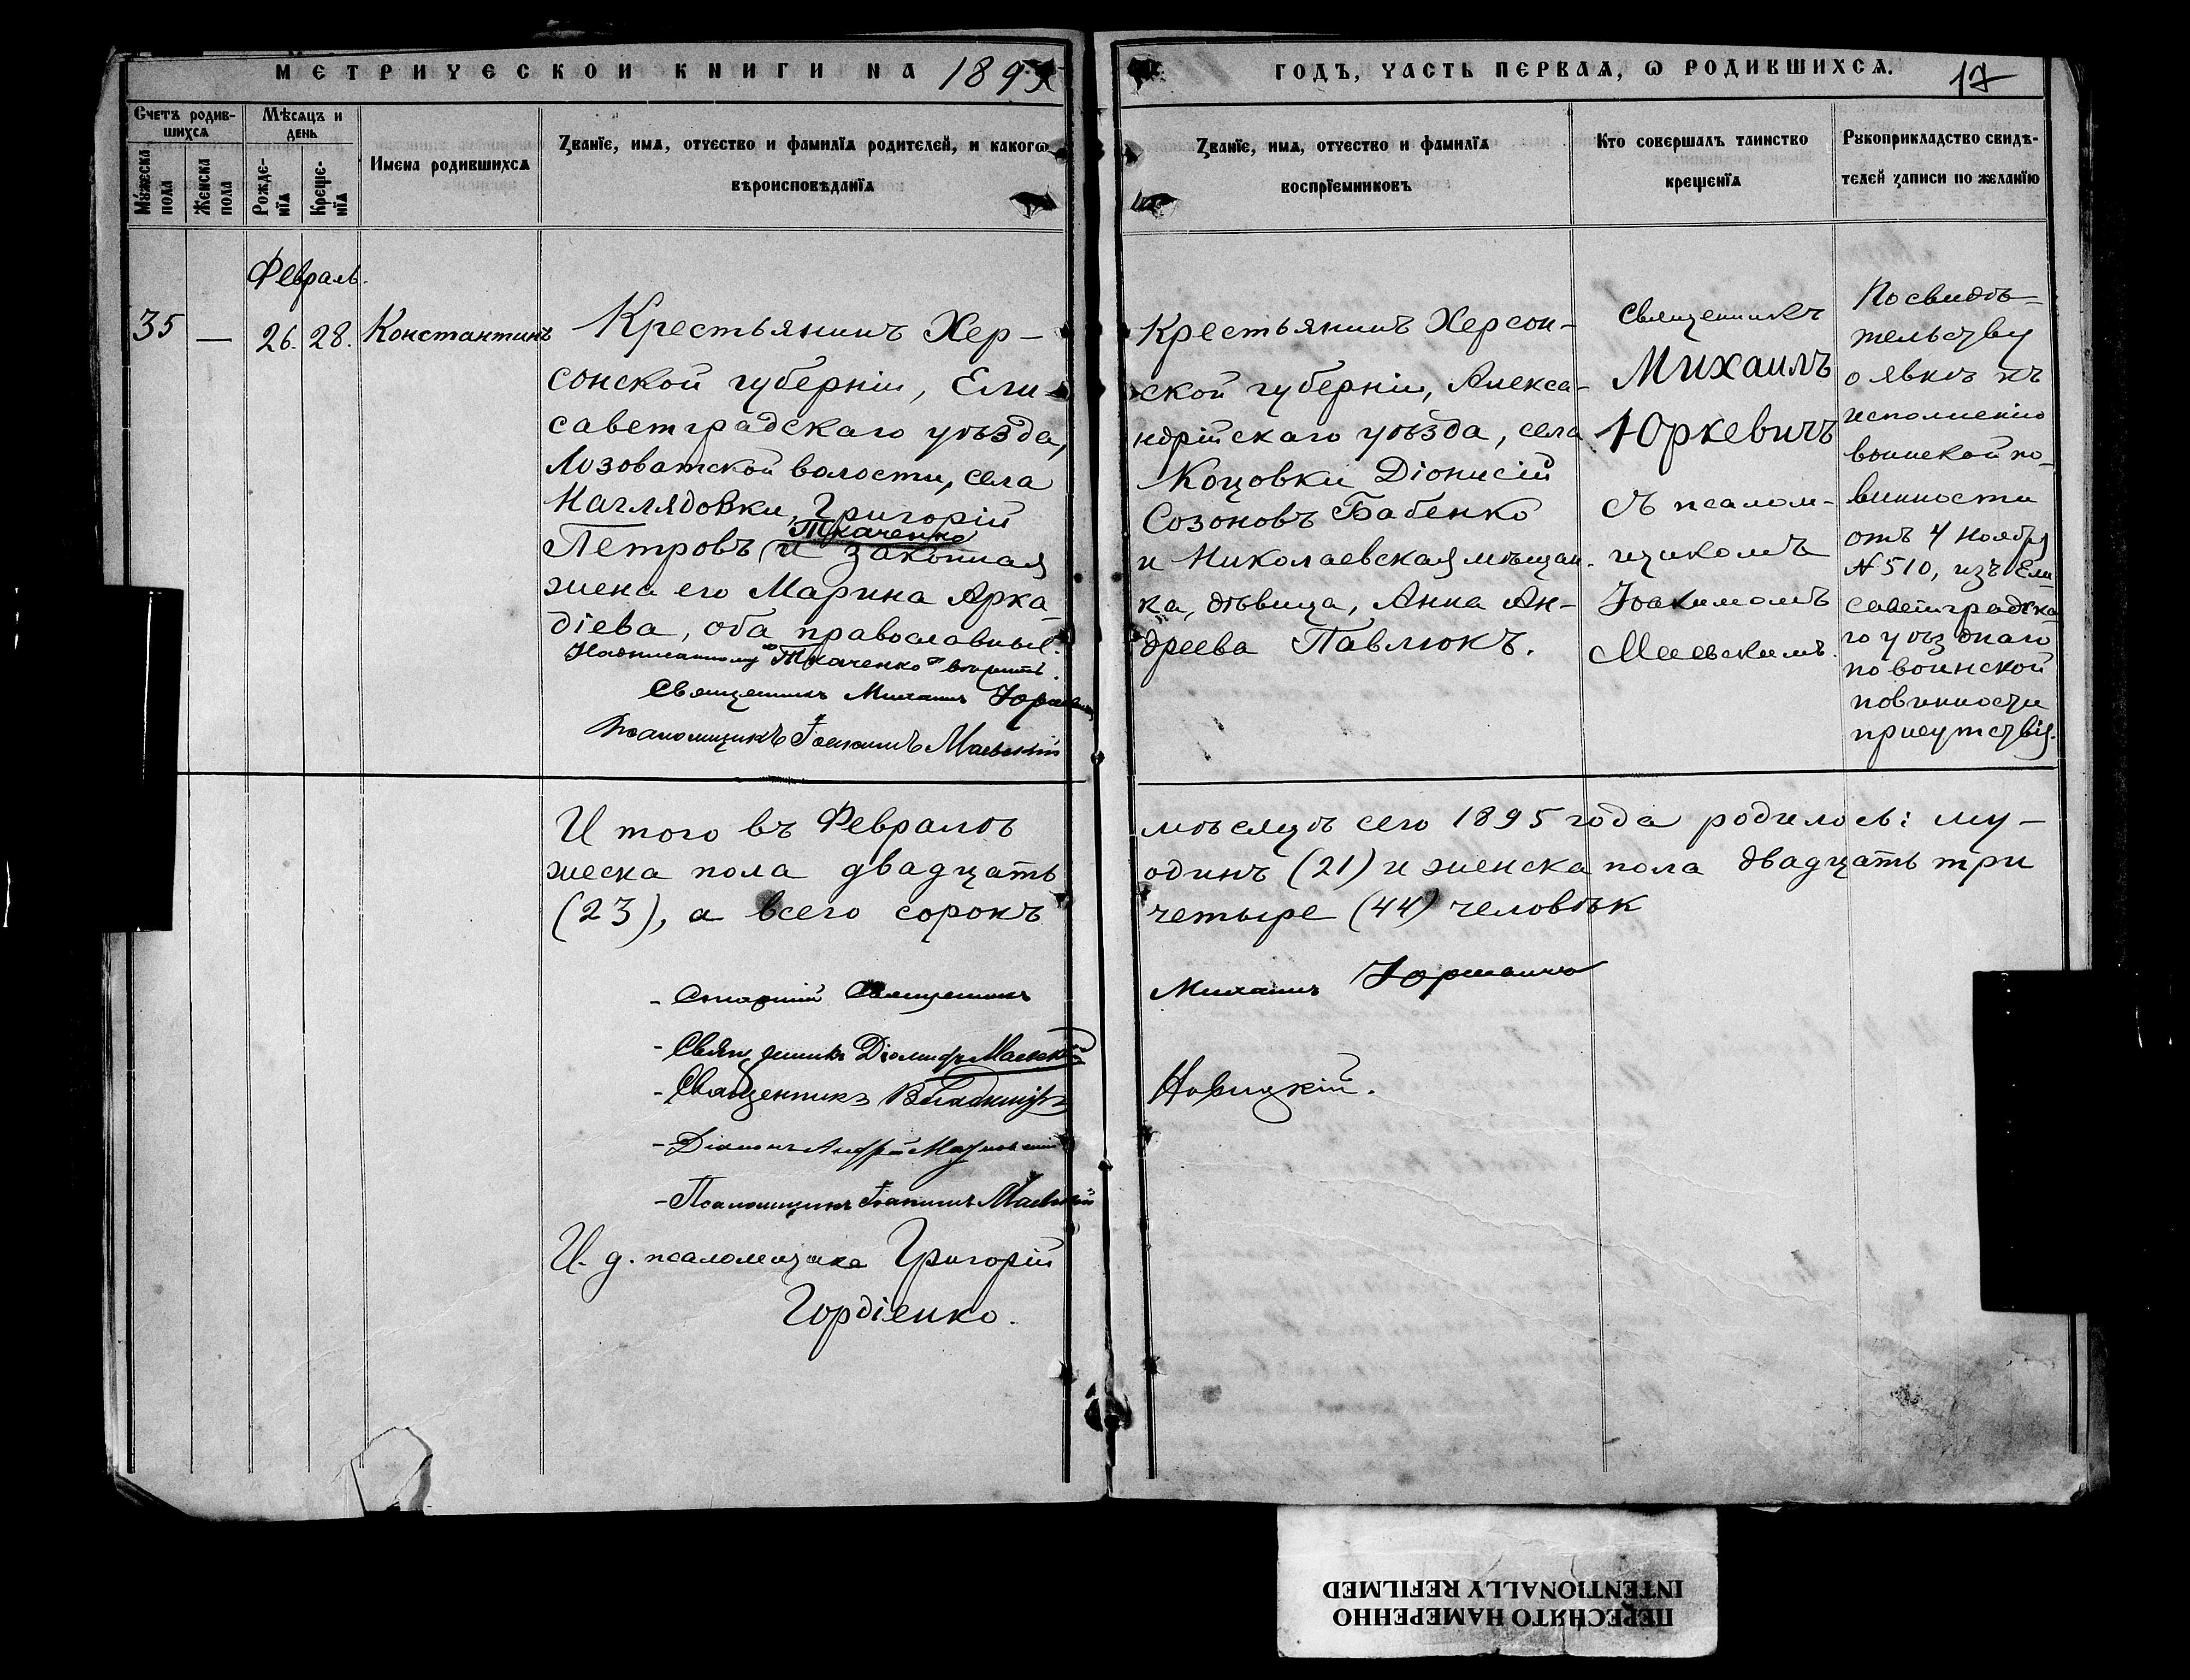 МЕТРИЧЕСКОЙ КНИГИ НА 1895
ГОДЪ, ЧАСТЬ ПЕРВАЯ, Ѡ РОДИВШИХСЯ. 17
Счетъ родив-
шихся
Мѣсяцъ и
день
Мужеска
пола
Женска
пола
Рожде-
нія
Креще-
нія
Имена родившихся
Званіе, имя, отчество и фамилія родителей, и какогѡ
вѣроисповѣданія
Званіе, имя, отчество и фамилія
воспріемниковъ
Кто совершалъ таинство
крещенія
Рукоприкладство свидѣ-
телей записи по желанію
Февраль.
35 — 26. 28. Константинъ
Крестьянинъ Хер-
сонской губерніи, Ели-
саветградскаго уѣзда,
Лозоватской волости, села
Наглядовки, Григорій
Ткаченко
Петровъ и законная
жена его Марина Арка-
діева, оба православные.
Надписанному „Ткаченко“ вѣрить.
Священникъ Михаилъ Юркевичъ
Псаломщикъ Іоакимъ Маевскій
Крестьянинъ Херсон-
ской губерніи, Алекса-
ндрійскаго уѣзда, села
Коцовки Діонисій
Созоновъ Бабенко
и Николаевская мѣщан-
ка, дѣвица, Анна Ан-
дреева Павлюкъ.
Священникъ
Михаилъ
Юркевичъ
съ псалом-
щикомъ
Іоакимомъ
Маевскимъ.
По свидѣ-
тельству
о явкѣ къ
исполненію
воинской по-
винности
отъ 4 Ноября
№ 510, изъ Ели-
саветградска-
го уѣзднаго
по воинской
повинности
присутствія.
Итого въ Февралѣ
мѣсяцѣ сего 1895 года родилось: му-
жеска пола двадцать
одинъ (21) и женска пола двадцать три
(23), а всего сорокъ
четыре (44) человѣк
- Старшій Священникъ
Михаилъ Юркевичъ
- Священникъ Діомидъ Маевскій
- Священникъ Владиміръ
Новицкій.
- Діаконъ Андрей
- Псаломщикъ Іоакимъ Маевскій
И. д. псаломщика Григорій
Гордіенко.
ПЕРЕСНЯТО НАМЕРЕННО
INTENTIONALLY REFILMED